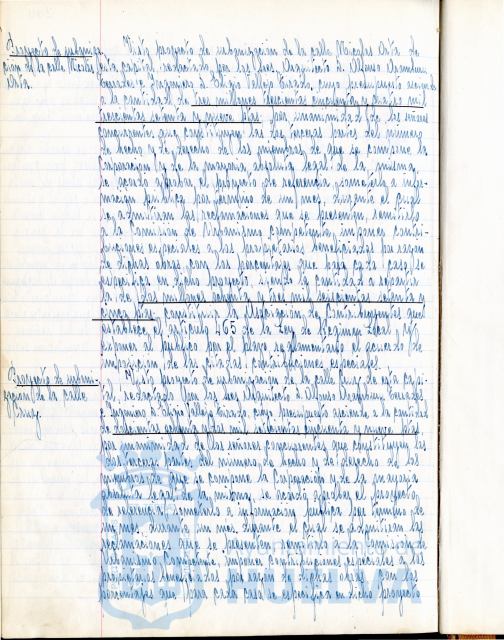 Proyecto de urbaniza-
ción de la calle Nicolás
Orta.
Visto proyecto de urbanización de la calle Nicolás Orta, de
esta capital, redactado por los Sres. Arquitecto D. Alfonso
e Ingeniero D. Sergio Vallejo cuyo presupuesto asciende
a la cantidad de tres millones mil
pesetas, por unanimidad de los señores
concurrentes que constituyen las dos terceras partes del número
de hecho y de derecho de los miembros de que se compone la
Corporación y de la mayoría absoluta legal de la misma,
se acordó aprobar el proyecto de referencia, someterlo a infor-
mación pública por término de un mes, durante el cual
se admitirán las reclamaciones que se presenten, remitirlo
a la Comisión de Urbanismo competente, imponer contri-
buciones especiales a los propietarios beneficiados por razón
de dichas obras, con los porcentajes que para cada caso se
especifica en dicho proyecto, siendo la cantidad a repartir
la de dos millones
constituir la Asociación de Contribuyentes que
establece el artículo 465 de la Ley de Régimen Local, y
exponer al público por el plazo reglamentario el acuerdo de
imposición de las citadas contribuciones especiales.
Proyecto de urbani-
zación de la calle
Visto proyecto de urbanización de la calle de esta capi-
tal, redactado por los Sres. Arquitecto D. Alfonso
e Ingeniero D. Sergio Vallejo cuyo presupuesto asciende a la cantidad
de mil cincuenta y nueve ptas.
por unanimidad de los señores concurrentes que constituyen las
dos terceras partes del número de hecho y de derecho de los
miembros de que se compone la Corporación y de la mayoría
absoluta legal de la misma, se acordó aprobar el proyecto
de referencia, someterlo a información pública por término de
un mes, durante el cual se admitirán las
reclamaciones que se presenten, remitirlo a la Comisión de
Urbanismo competente, imponer contribuciones especiales a los
propietarios beneficiados por razón de dichas obras, con los
porcentajes que para cada caso se especifica en dicho proyecto
Ayuntamiento de
HUELVA